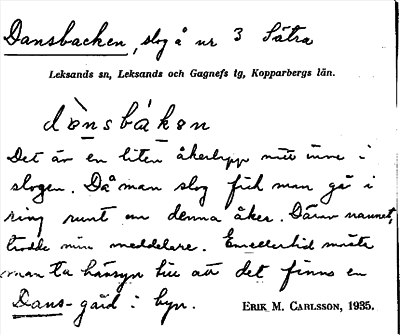 Dansbacken, slog å nr 3 Sätra
Leksands sn, Leksands och Gagnefs tg, Kopparbergs län.
dànsbákən
Det är en liten åkerlapp mitt inne i
slogen. Då man slog fick man gå i
ring runt om denna åker. Därav namnet,
trodde min meddelare. Emellertid måste
man ta hänsyn till att det finns en
Dans-gård i byn.
ERIK M. CARLSSON, 1935.